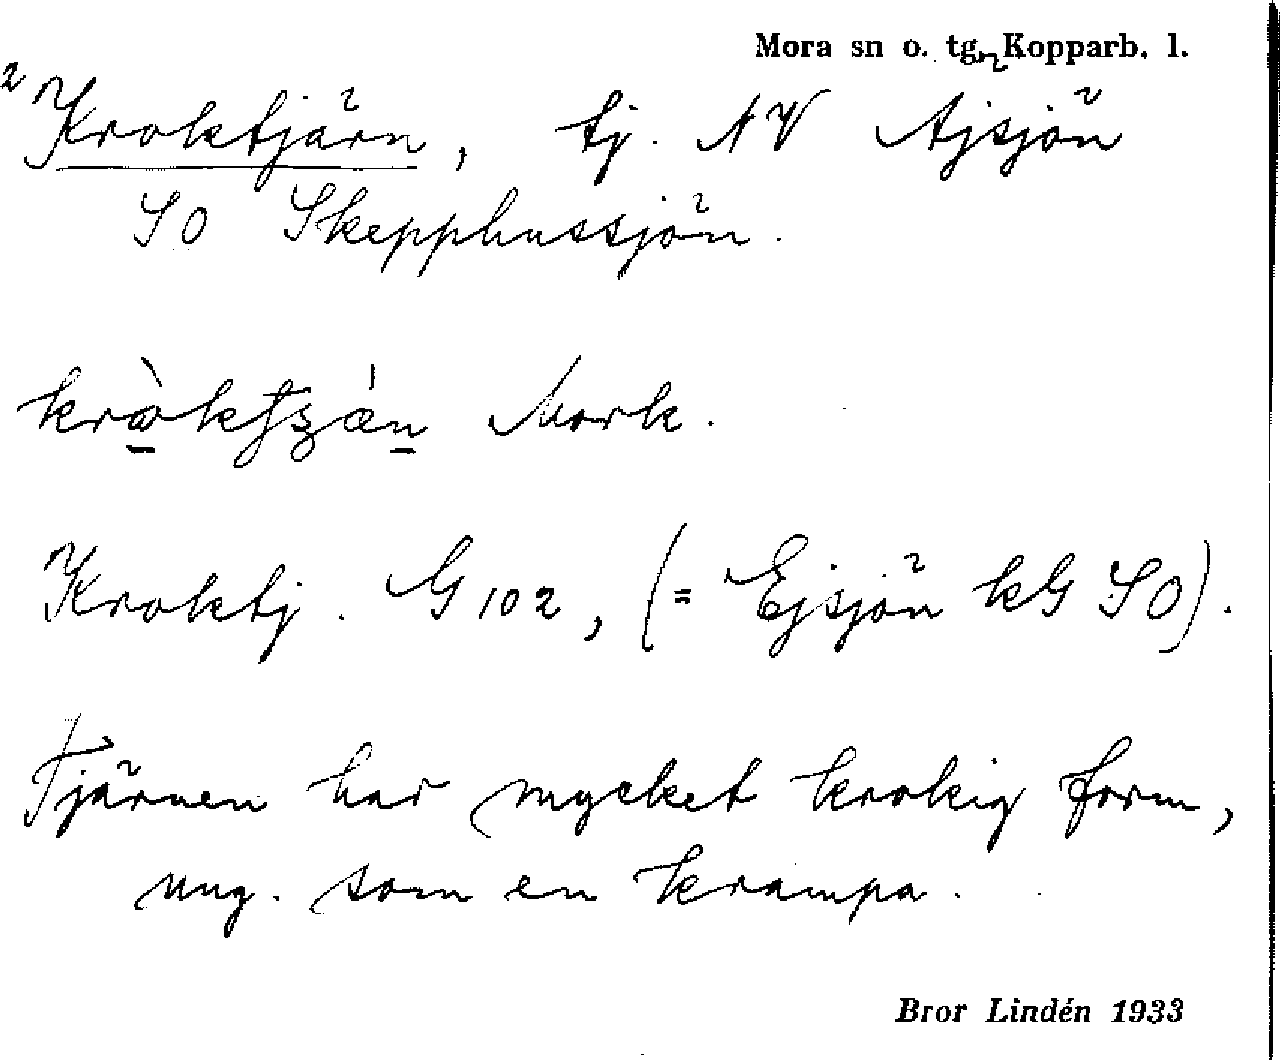 Mora sn o. tg, Kopparb. l.
2 Kroktjärn, tj. NV Ajsjön
SO Skepphussjön.
Mork.
Kroktj. G 102, (= Ejsjön kG SO).
Tjärnen har mycket krokig form,
ung. som en krampa.
Bror Lindén 1933